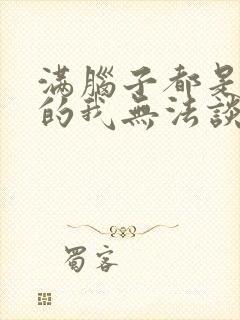 滿腦子都是
的我無法談
蜀客